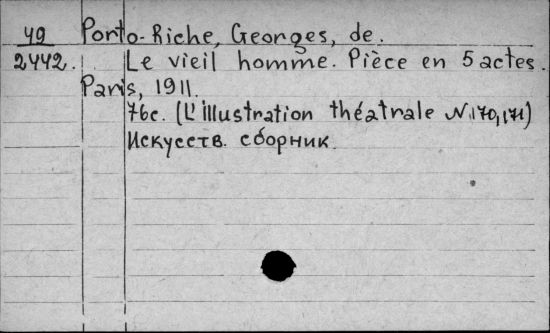 49 Porto-Riche, Georges, de.
2442. Le vieil homme. Pièce en 5 actes.
Paris, 1911.
76c. (L'illustration théatrale N.170,171)
Искусств. сборник.